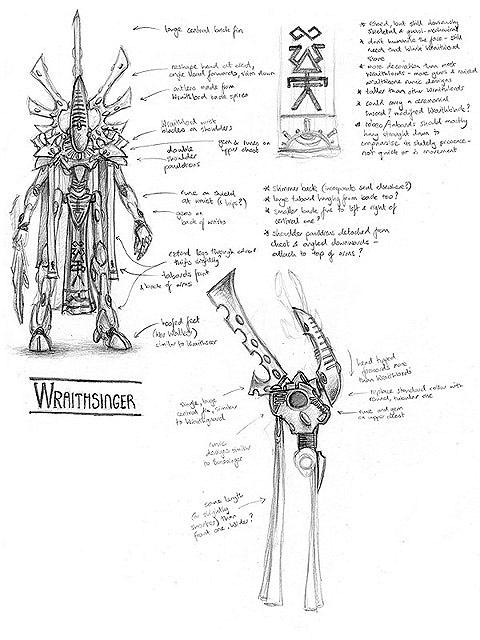 large central back fin
reshape hand at end,
angle hand forwards, slim down
antlers made from
Wraithlord back spires
Wraithlord wrist
blades on shoulders
gem & runes on
upper chest
double
shoulder
pauldrons
rune on shield
at wrist (& hips?)
gems on
back of wrists
extend legs through
thighs slightly
tabards front
& back of arms
hoofed feet
similar to Wraithseer
WRAITHSINGER
* robed, but still obviously
skeletal & quasi-mechanical
* don't humanise the face - still
need that blank Wraithlord
stare
* more decorative than most
Wraithlords - more gems & raised
wraithbone runic designs
* taller than other Wraithlords
* could carry a ceremonial
sword? modified Wraithblade?
* robes/tabards should mostly
hang straight down to
emphasise its stately presence -
not quick or in movement
* slimmer back (incorporate seal elsewhere?)
* large tabard hanging from back too?
* smaller back fins to left & right of
central one?
* shoulder pauldrons detached from
chest & angled downwards -
attach to top of arms?
head tipped
forwards more
than Wraithlords
replace standard collar with
round, tubular one
rune and gem
on upper chest
single, large
central fin, similar
to Wraithguard
runic
designs similar
to
same length
(or slightly
shorter) than
front one, wider?